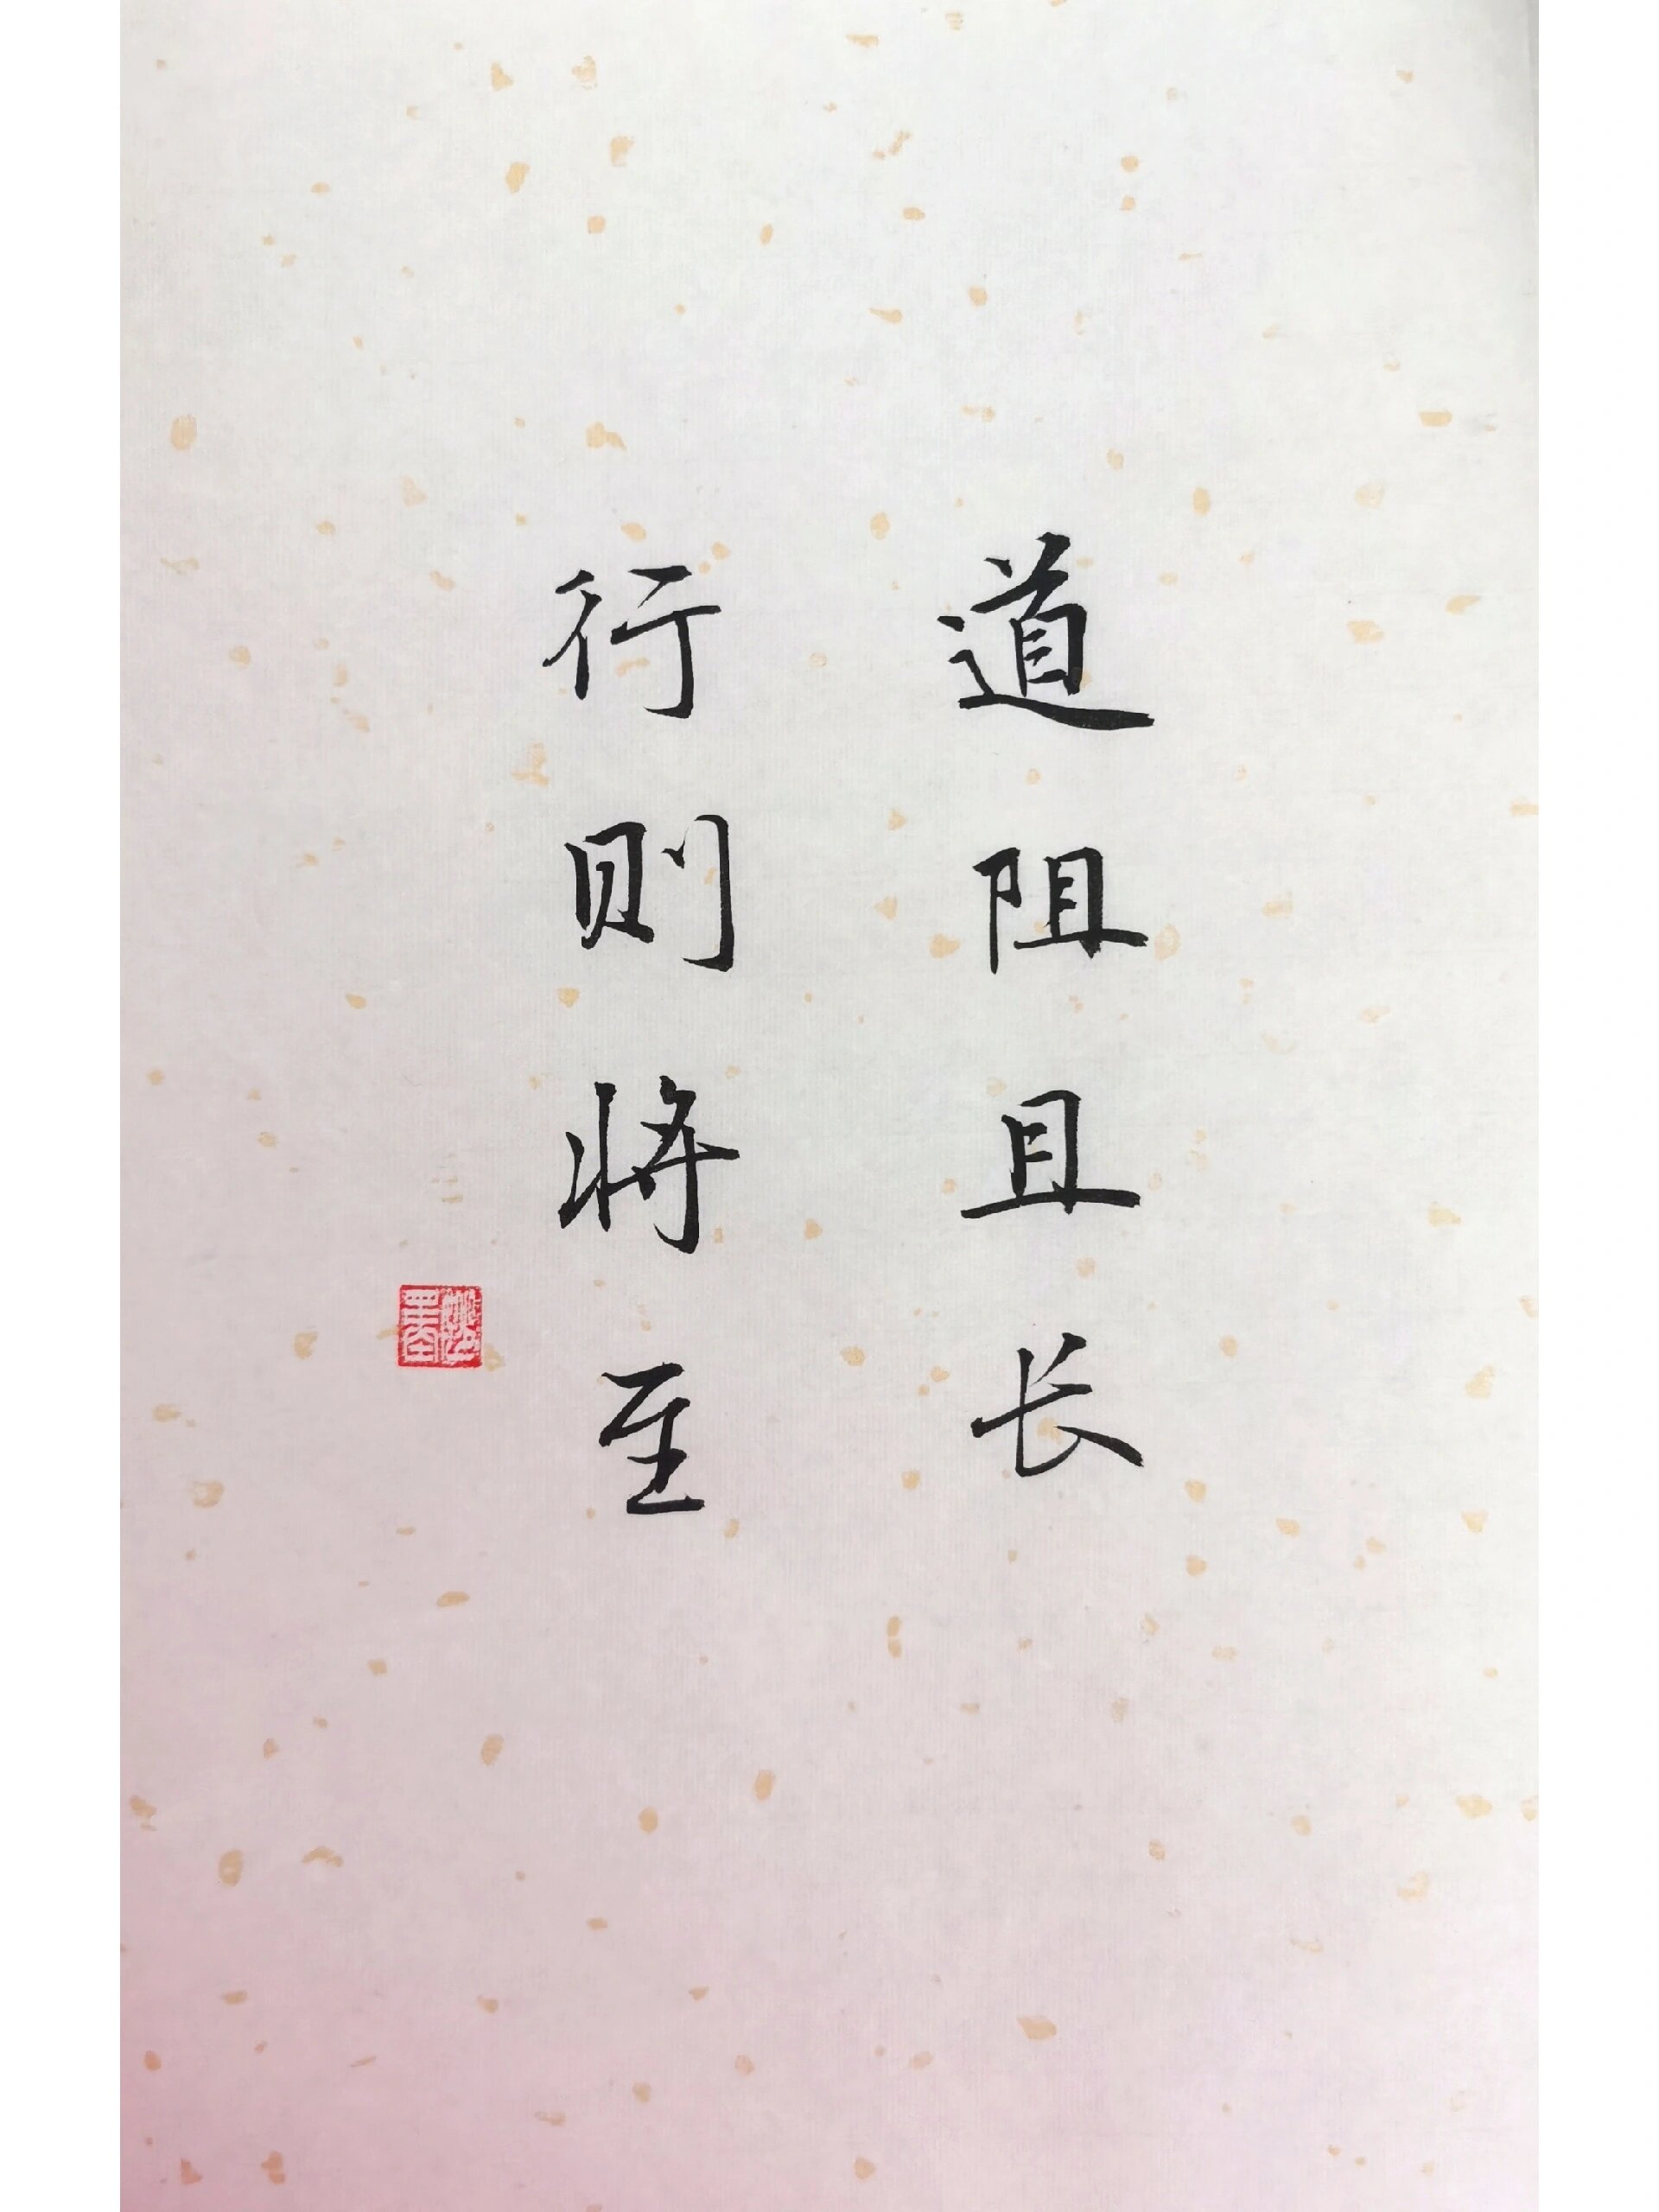 道阻且长
行则将至